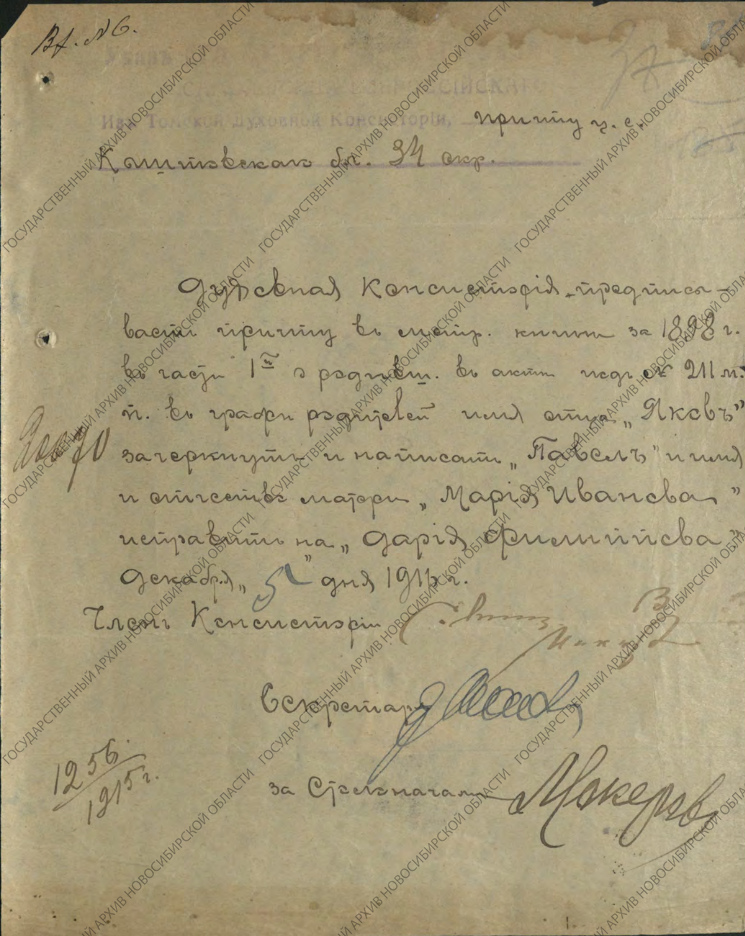 Вх. № 6.
Указъ
Изъ Томской Духовной Консисторіи, причту ц. с.
бл. 34 окр.
Духовная Консисторія предписы-
ваетъ причту въ метр. книгѣ за 1898 г.
въ части 1й о родивш. въ актѣ подъ № 211 м.
п. въ графѣ родителей имя отца „Яковъ"
зачеркнуть и написать „Павелъ" и имя
и отчество матери „Марія Иванова"
исправить на „Дарія Филиппова"
Декабря „5" дня 1915 г.
Членъ Консисторіи
Секретарь
за Столоначальн.
1256.
1915 г.
ГОСУДАРСТВЕННЫЙ АРХИВ НОВОСИБИРСКОЙ ОБЛАСТИ